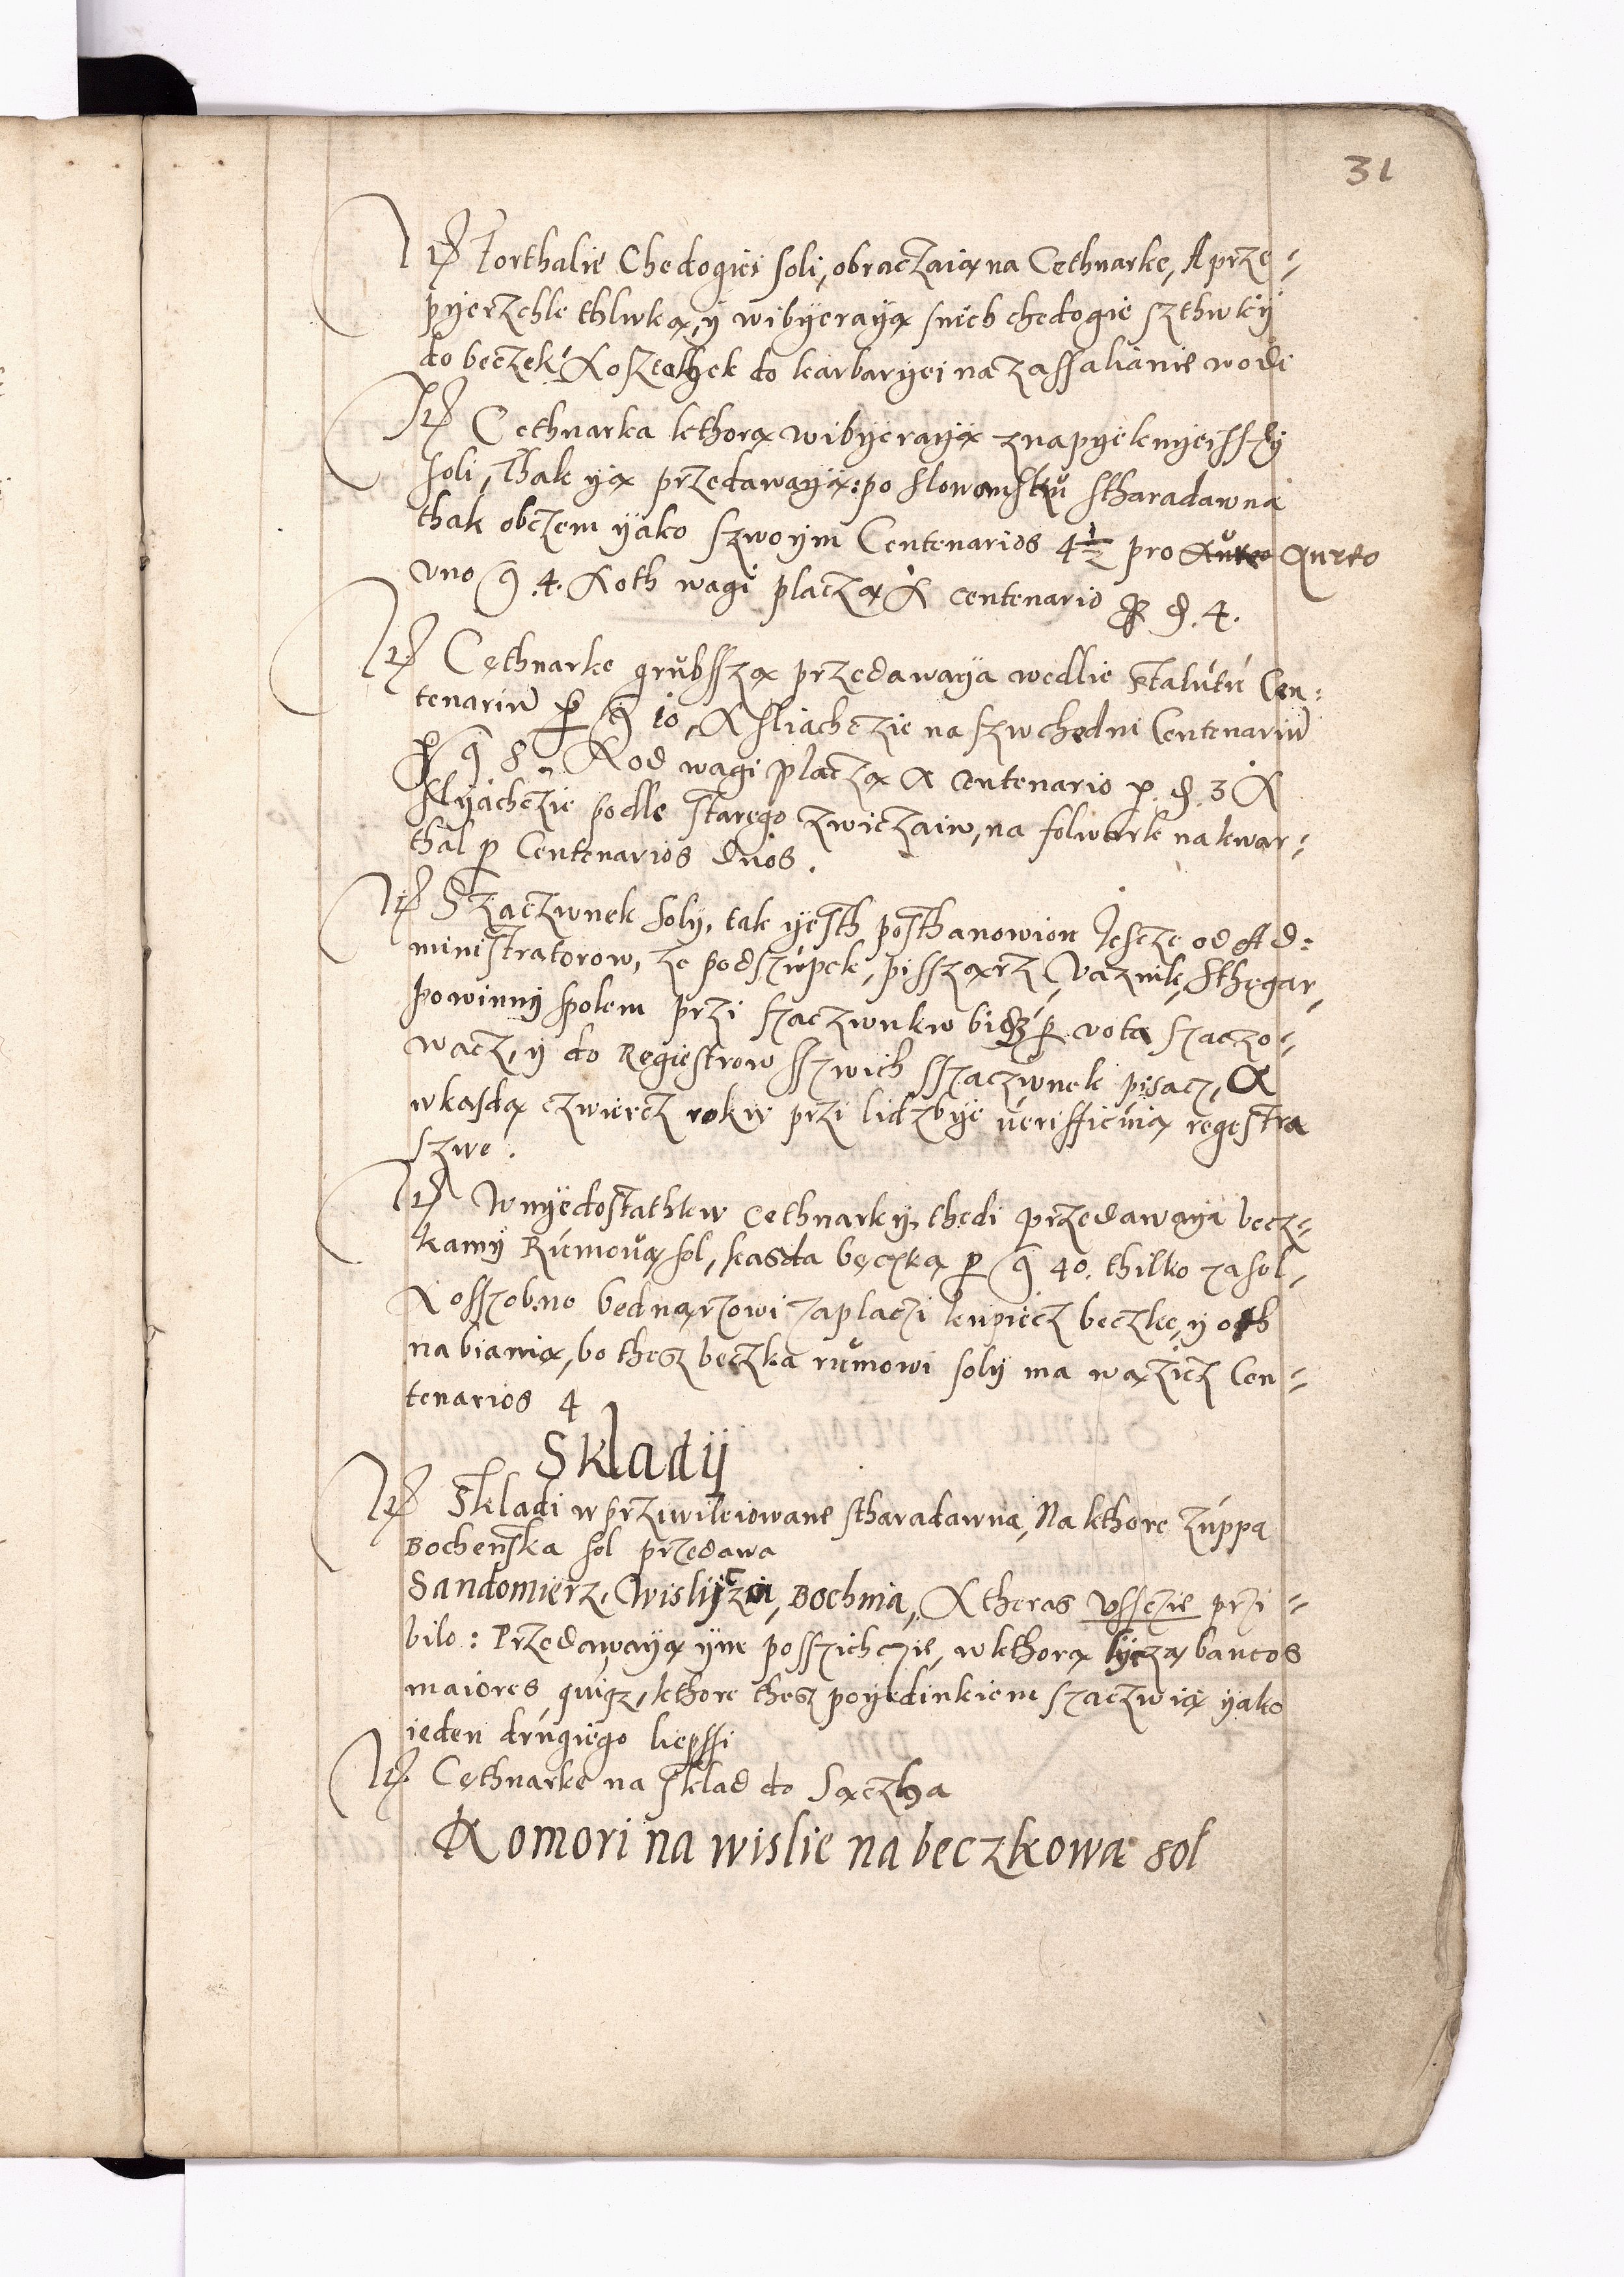 31
Itē Fforthalie Chedogiei soli, obraczaią na Cethnarke, A prze-
pyerzchle thlwką, y wibyerayą snich chedogie szthwky
do beczek. A oszeathek do karbaryei na zassalianie wodi
Itē Cethnarka kthorą wibyerayą znapyeknyeissy
soli, Thak yą przedawayą: po slowansku stharadawna
thak obczem yako szwoym Centenarios 4½ pro Aureo
vno g 4. A oth wagi placzą A centenario p d. 4.
Itē Cethnarke grubsszą przedawaya wedlie statutu Cen-
tenariu per g 10, A sliachczie na szwchedni Centenariu
p g 8. A od wagi placzą A centenario p. d. 3 A
slyachczie podle starego zwiczaiw, na folwark na kwar-
thal p Centenarios duos.
Itē Szaczwnek soly, tak yesth posthanowion Iescze od Ad-
ministratorow, ze podszupek, pisszarz, vaznik, sthegar,
powinny spolem przi szaczwnkw bidz per vota szaczo-
wacz, y do Regiestrow sszwich sszaczwnek pisacz, A
wkasdą czwiercz rokw przi lidzbye verifficuią regestra
szwe.
Itē W nyedostathkw Cethnarky, thedi przedawaya becz-
kamy Rumouą sol, kasda beczka p g 40. thilko za sol,
A osszobno bednarzowi zaplaczi kupiecz beczke, y oth
nabianią, bo thesz beczka rumowi soly ma wazicz Cen-
tenarios 4
Skladÿ
Itē Skladi wprziwileiowane stharadawna, Na kthore zuppa
Bochenska sol przedawa
Sandomierz, Wislycza, Bochnia, A theras Vssczie przi-
bilo: Przedawayą yne posszichczie, w kthorą lyczą bancos
maiores quinqz, kthore thesz poyedinkiem szaczwią yako
ieden drugiego liepssi
Itē. Cethnarke na sklad do Sączha
Komori na wislie na beczkowa sol